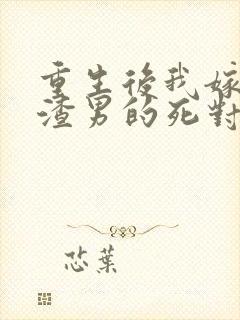 重生後我嫁
渣男的死對
芯葉